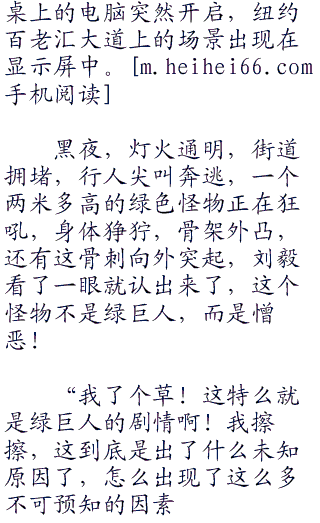 桌上的电脑突然开启，纽约
百老汇大道上的场景出现在
显示屏中。[m.heihei66.com
手机阅读]
黑夜，灯火通明，街道
拥堵，行人尖叫奔逃，一个
两米多高的绿色怪物正在狂
吼，身体狰狞，骨架外凸，
还有这骨刺向外突起，刘毅
看了一眼就认出来了，这个
怪物不是绿巨人，而是憎
恶！
“我了个草！这特么就
是绿巨人的剧情啊！我擦
擦，这到底是出了什么未知
原因了，怎么出现了这么多
不可预知的因素